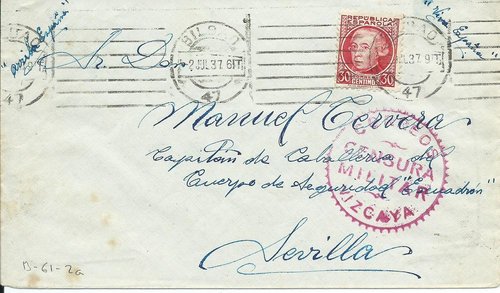 "Arriba España"
"Viva España"
BILBAO
2 JUL 37 6T
47
BILBAO
JUL 37 9T
47
REPUBLICA
ESPAÑOLA
30 CENTIMOS 30
Sr. Don
Manuel Cervera
Capitán de Caballería del
Cuerpo de Seguridad "Escuadrón"
Sevilla
CORREOS
CENSURA
MILITAR
VIZCAYA
B-61-2a